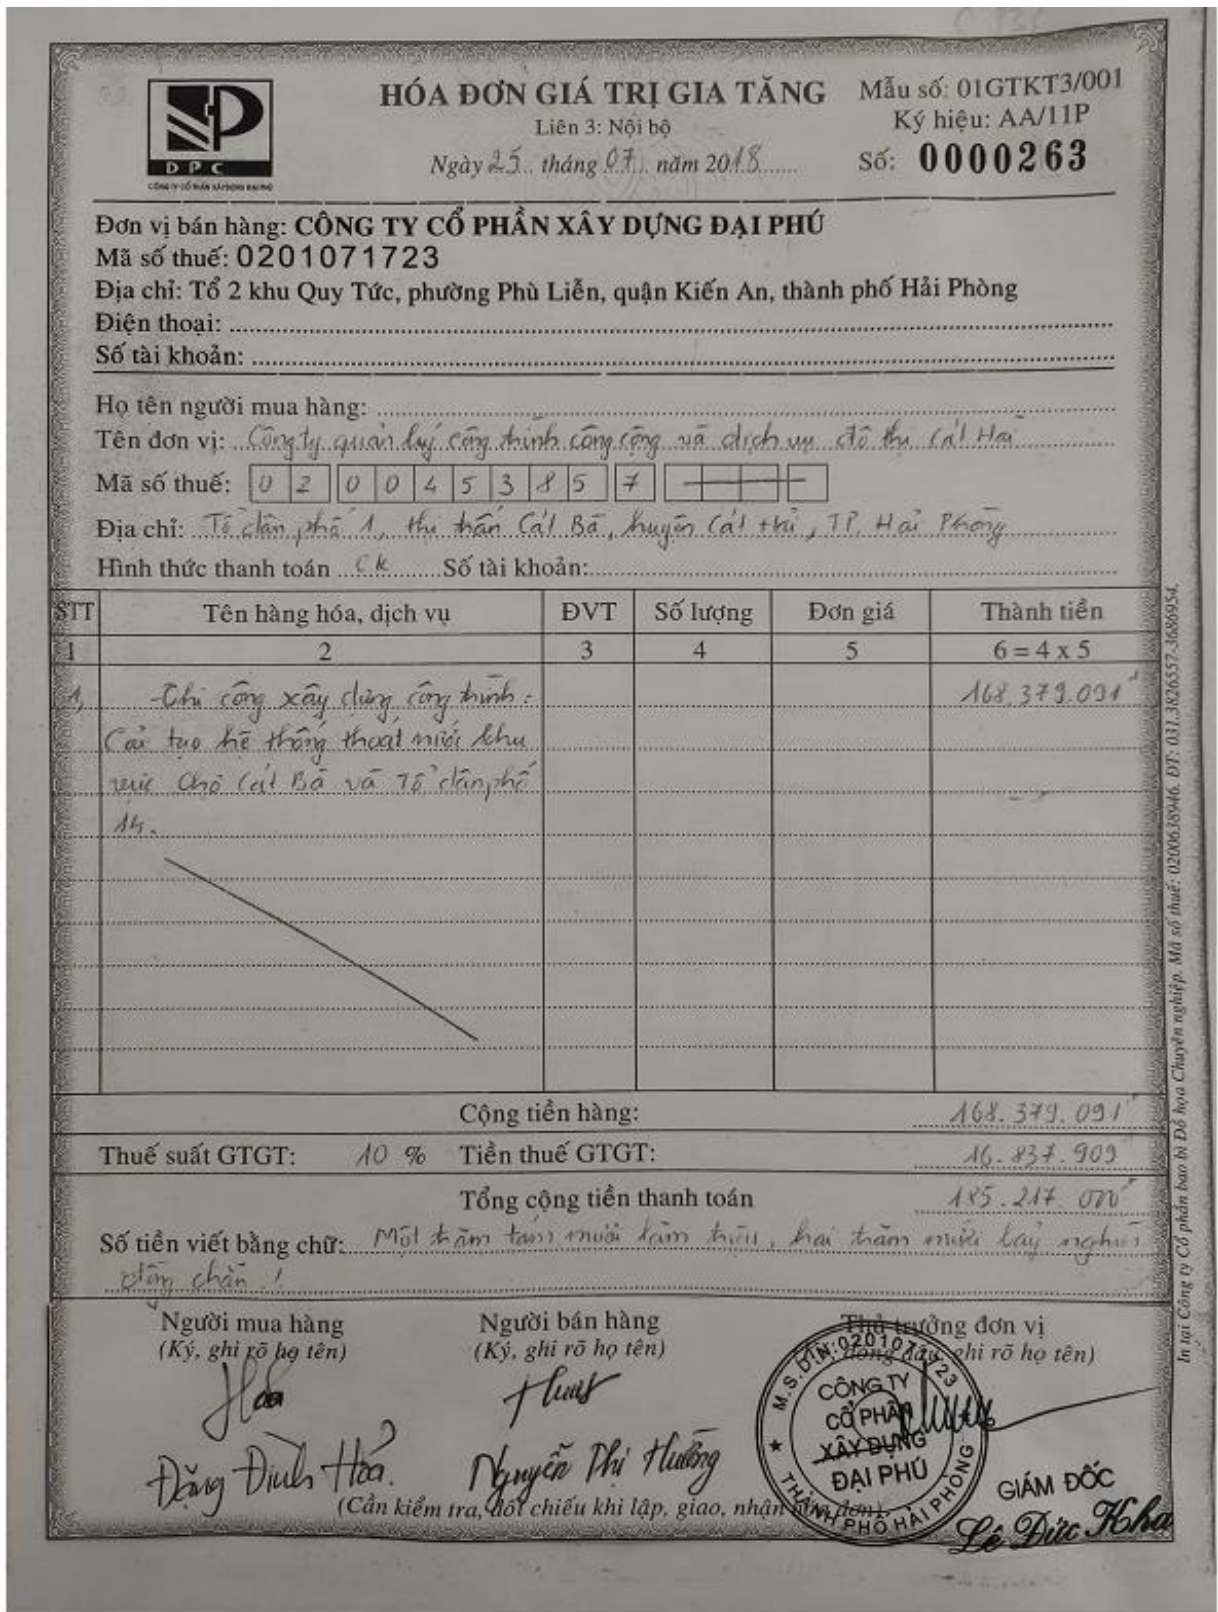 HÓA ĐƠN GIÁ TRỊ GIA TĂNG
Liên 3: Nội bộ
Ngày 25 tháng 07 năm 2018
Mẫu số: 01GTKT3/001
Ký hiệu: AA/11P
Số: 0000263
DPC
CÔNG TY CỔ PHẦN XÂY DỰNG ĐẠI PHÚ
Đơn vị bán hàng: CÔNG TY CỔ PHẦN XÂY DỰNG ĐẠI PHÚ
Mã số thuế: 0201071723
Địa chỉ: Tổ 2 khu Quy Tức, phường Phù Liễn, quận Kiến An, thành phố Hải Phòng
Điện thoại:
Số tài khoản:
Họ tên người mua hàng:
Tên đơn vị: Công ty quản lý công trình công cộng và dịch vụ đô thị Cát Hải
Mã số thuế: 0200453857
Địa chỉ: Tổ dân phố 1, thị trấn Cát Bà, huyện Cát Hải, TP. Hải Phòng
Hình thức thanh toán CK Số tài khoản:
STT Tên hàng hóa, dịch vụ ĐVT Số lượng Đơn giá Thành tiền
1 2 3 4 5 6 = 4 x 5
1, -Thi công xây dựng công trình: 168.379.091
Cải tạo hệ thống thoát nước khu
vực Chợ Cát Bà và Tổ dân phố
14.
Cộng tiền hàng: 168.379.091
Thuế suất GTGT: 10 % Tiền thuế GTGT: 16.837.909
Tổng cộng tiền thanh toán 185.217.000
Số tiền viết bằng chữ: Một trăm tám mươi lăm triệu, hai trăm mười bảy nghìn
đồng chẵn!
Người mua hàng Người bán hàng Thủ trưởng đơn vị
(Ký, ghi rõ họ tên) (Ký, ghi rõ họ tên) đóng dấu, ghi rõ họ tên)
M.S.D.N:0201071723
CÔNG TY
CỔ PHẦN
XÂY DỰNG
ĐẠI PHÚ
THÀNH PHỐ HẢI PHÒNG
Đặng Đình Hòa. Nguyễn Thị Hường
GIÁM ĐỐC
Lê Đức Kha
(Cần kiểm tra, đối chiếu khi lập, giao, nhận hóa đơn)
In tại Công ty Cổ phần bao bì Đồ họa Chuyên nghiệp. Mã số thuế: 0200638946. ĐT: 031.3826557-3686954.